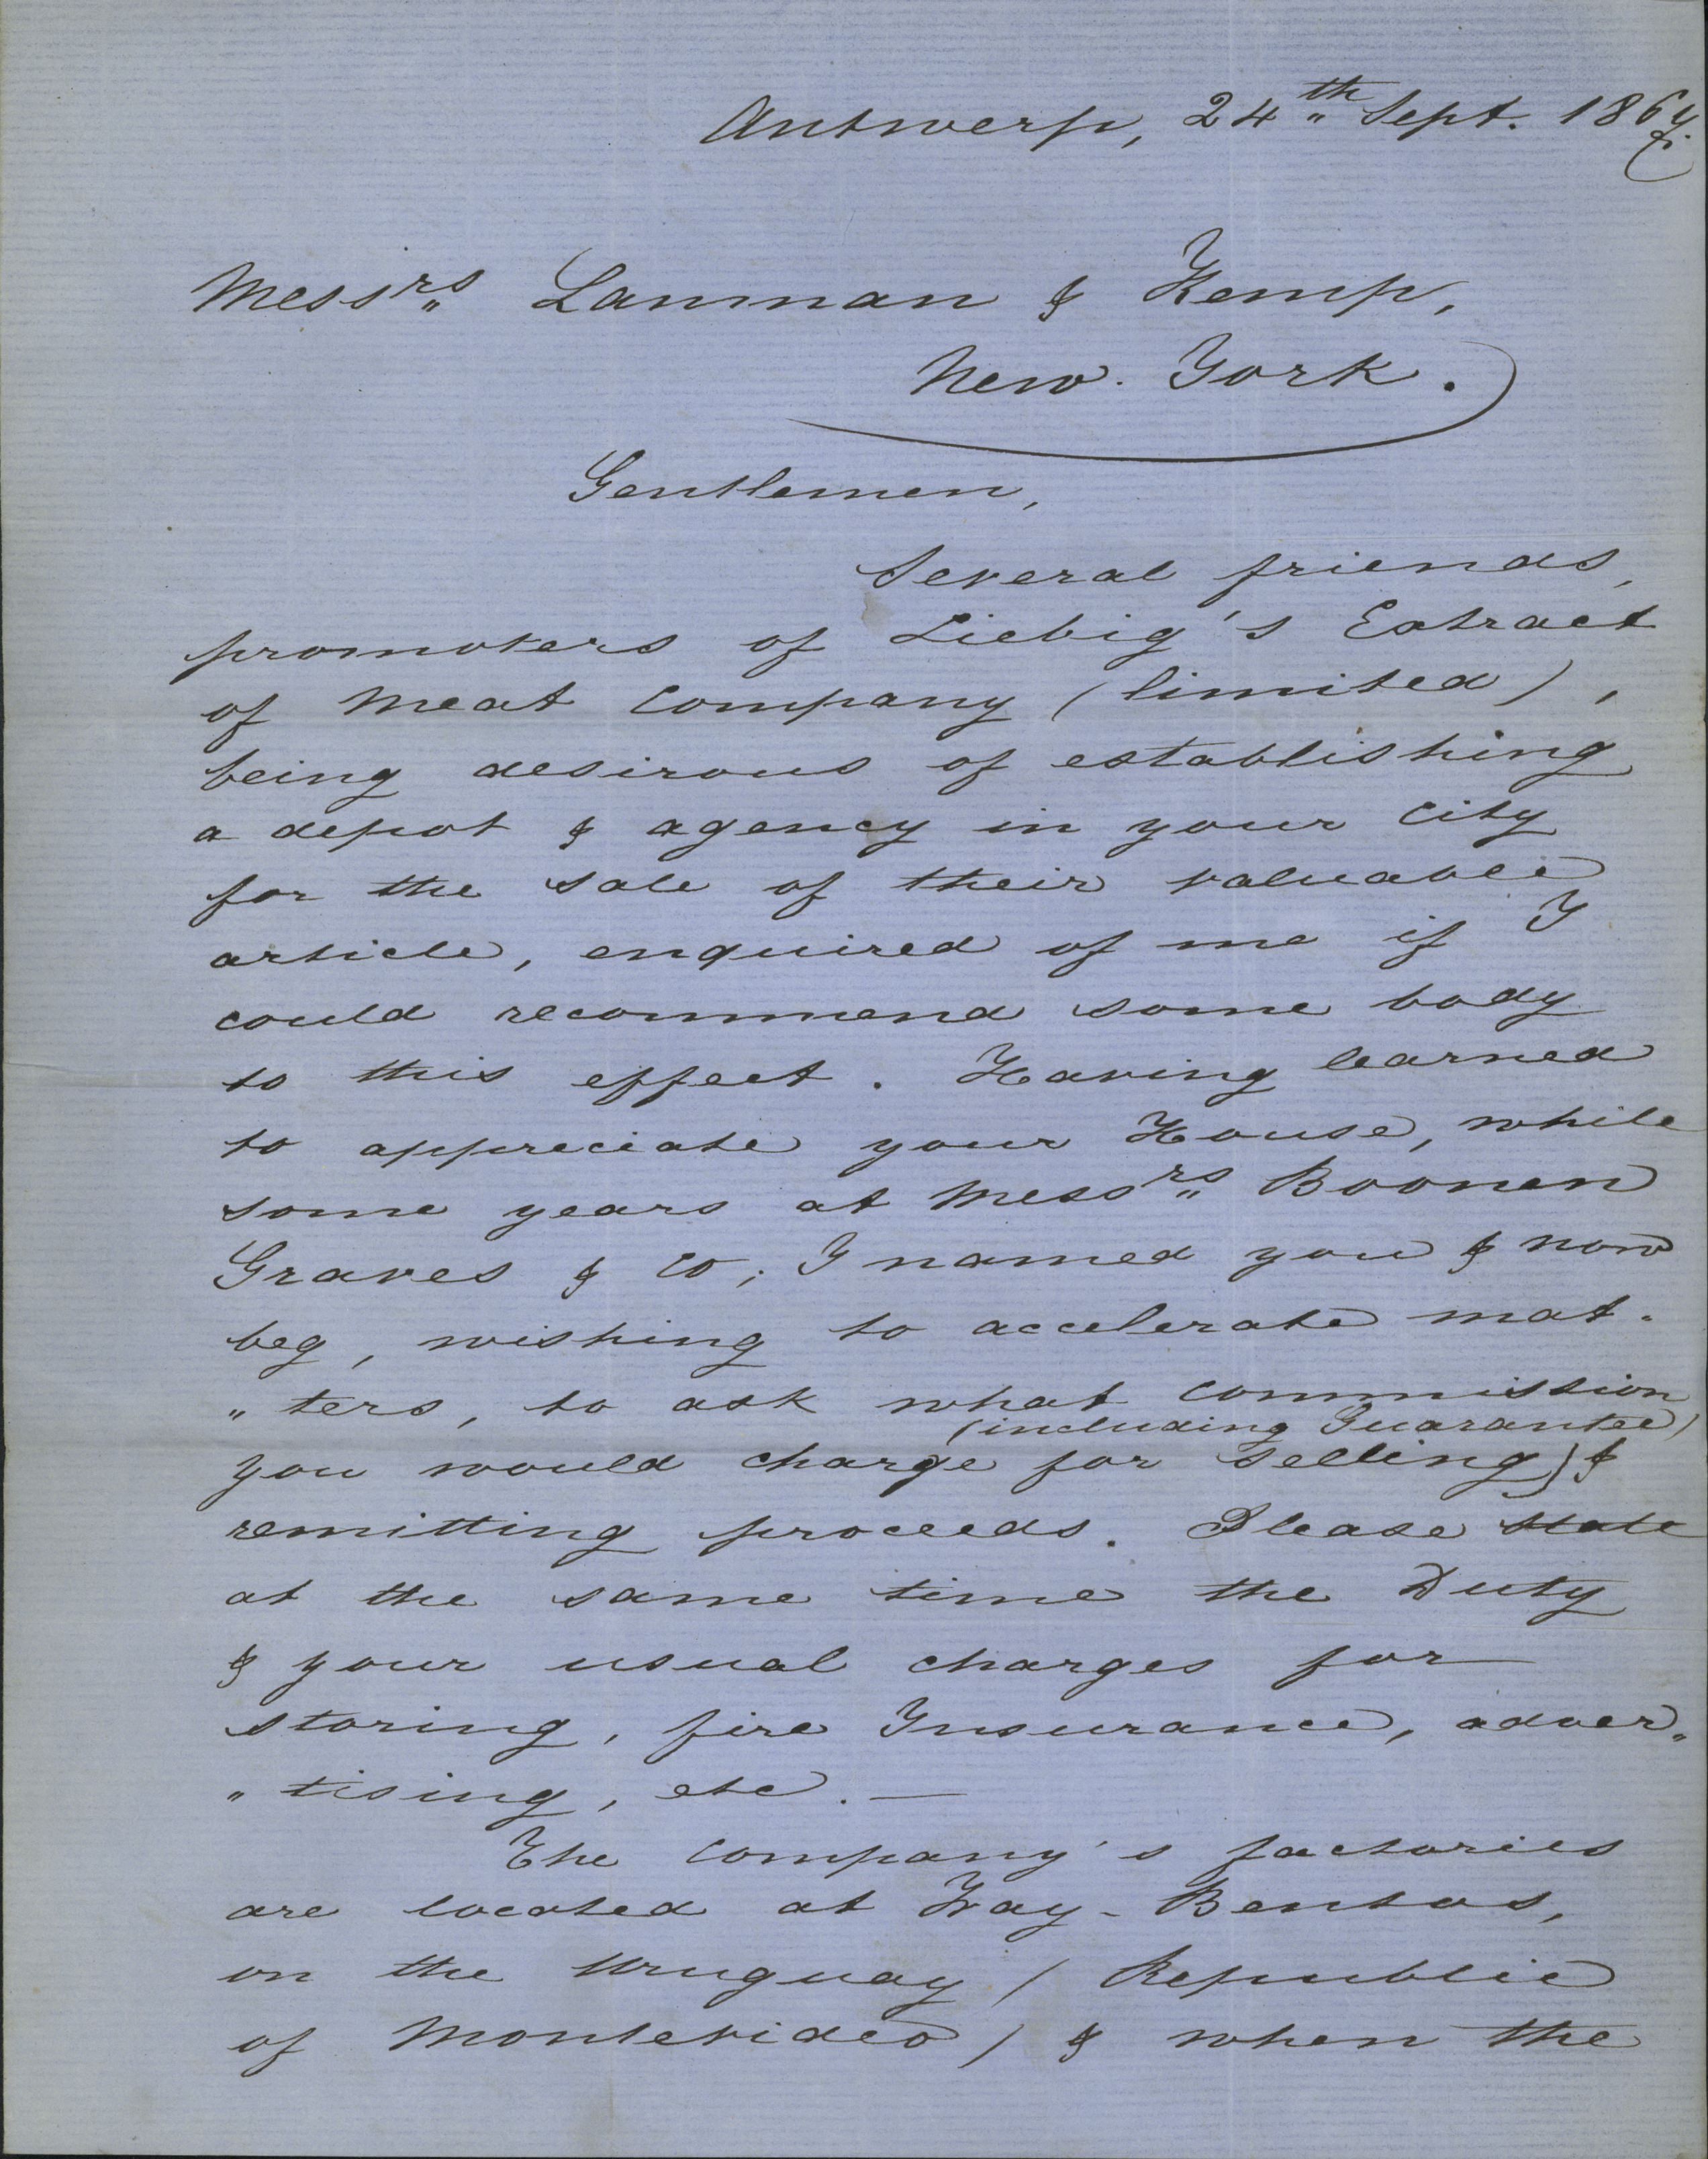 Antwerp, 24th Sept. 1864
Messrs Lanman & Kemp,
New York.
Gentlemen,
Several friends,
promoters of Liebig's Extract
of Meat Company (limited),
being desirous of establishing
a depot & agency in your City
for the sale of their valuable
article, enquired of me if I
could recommend some body
to this effect. Having learned
to appreciate your House, while
some years at Messrs Boonen
Graves & Co; I named you & now
beg, wishing to accelerate mat-
"ters, to ask what commission
(including Guarantee)
you would charge for selling) &
remitting proceeds. Please state
at the same time the Duty
& your usual charges for
storing, fire Insurance, adver„
"tising, etc. —
The Company's factories
are located at Fray-Bentos,
on the Uruguay (Republic
of Montevideo) & when the